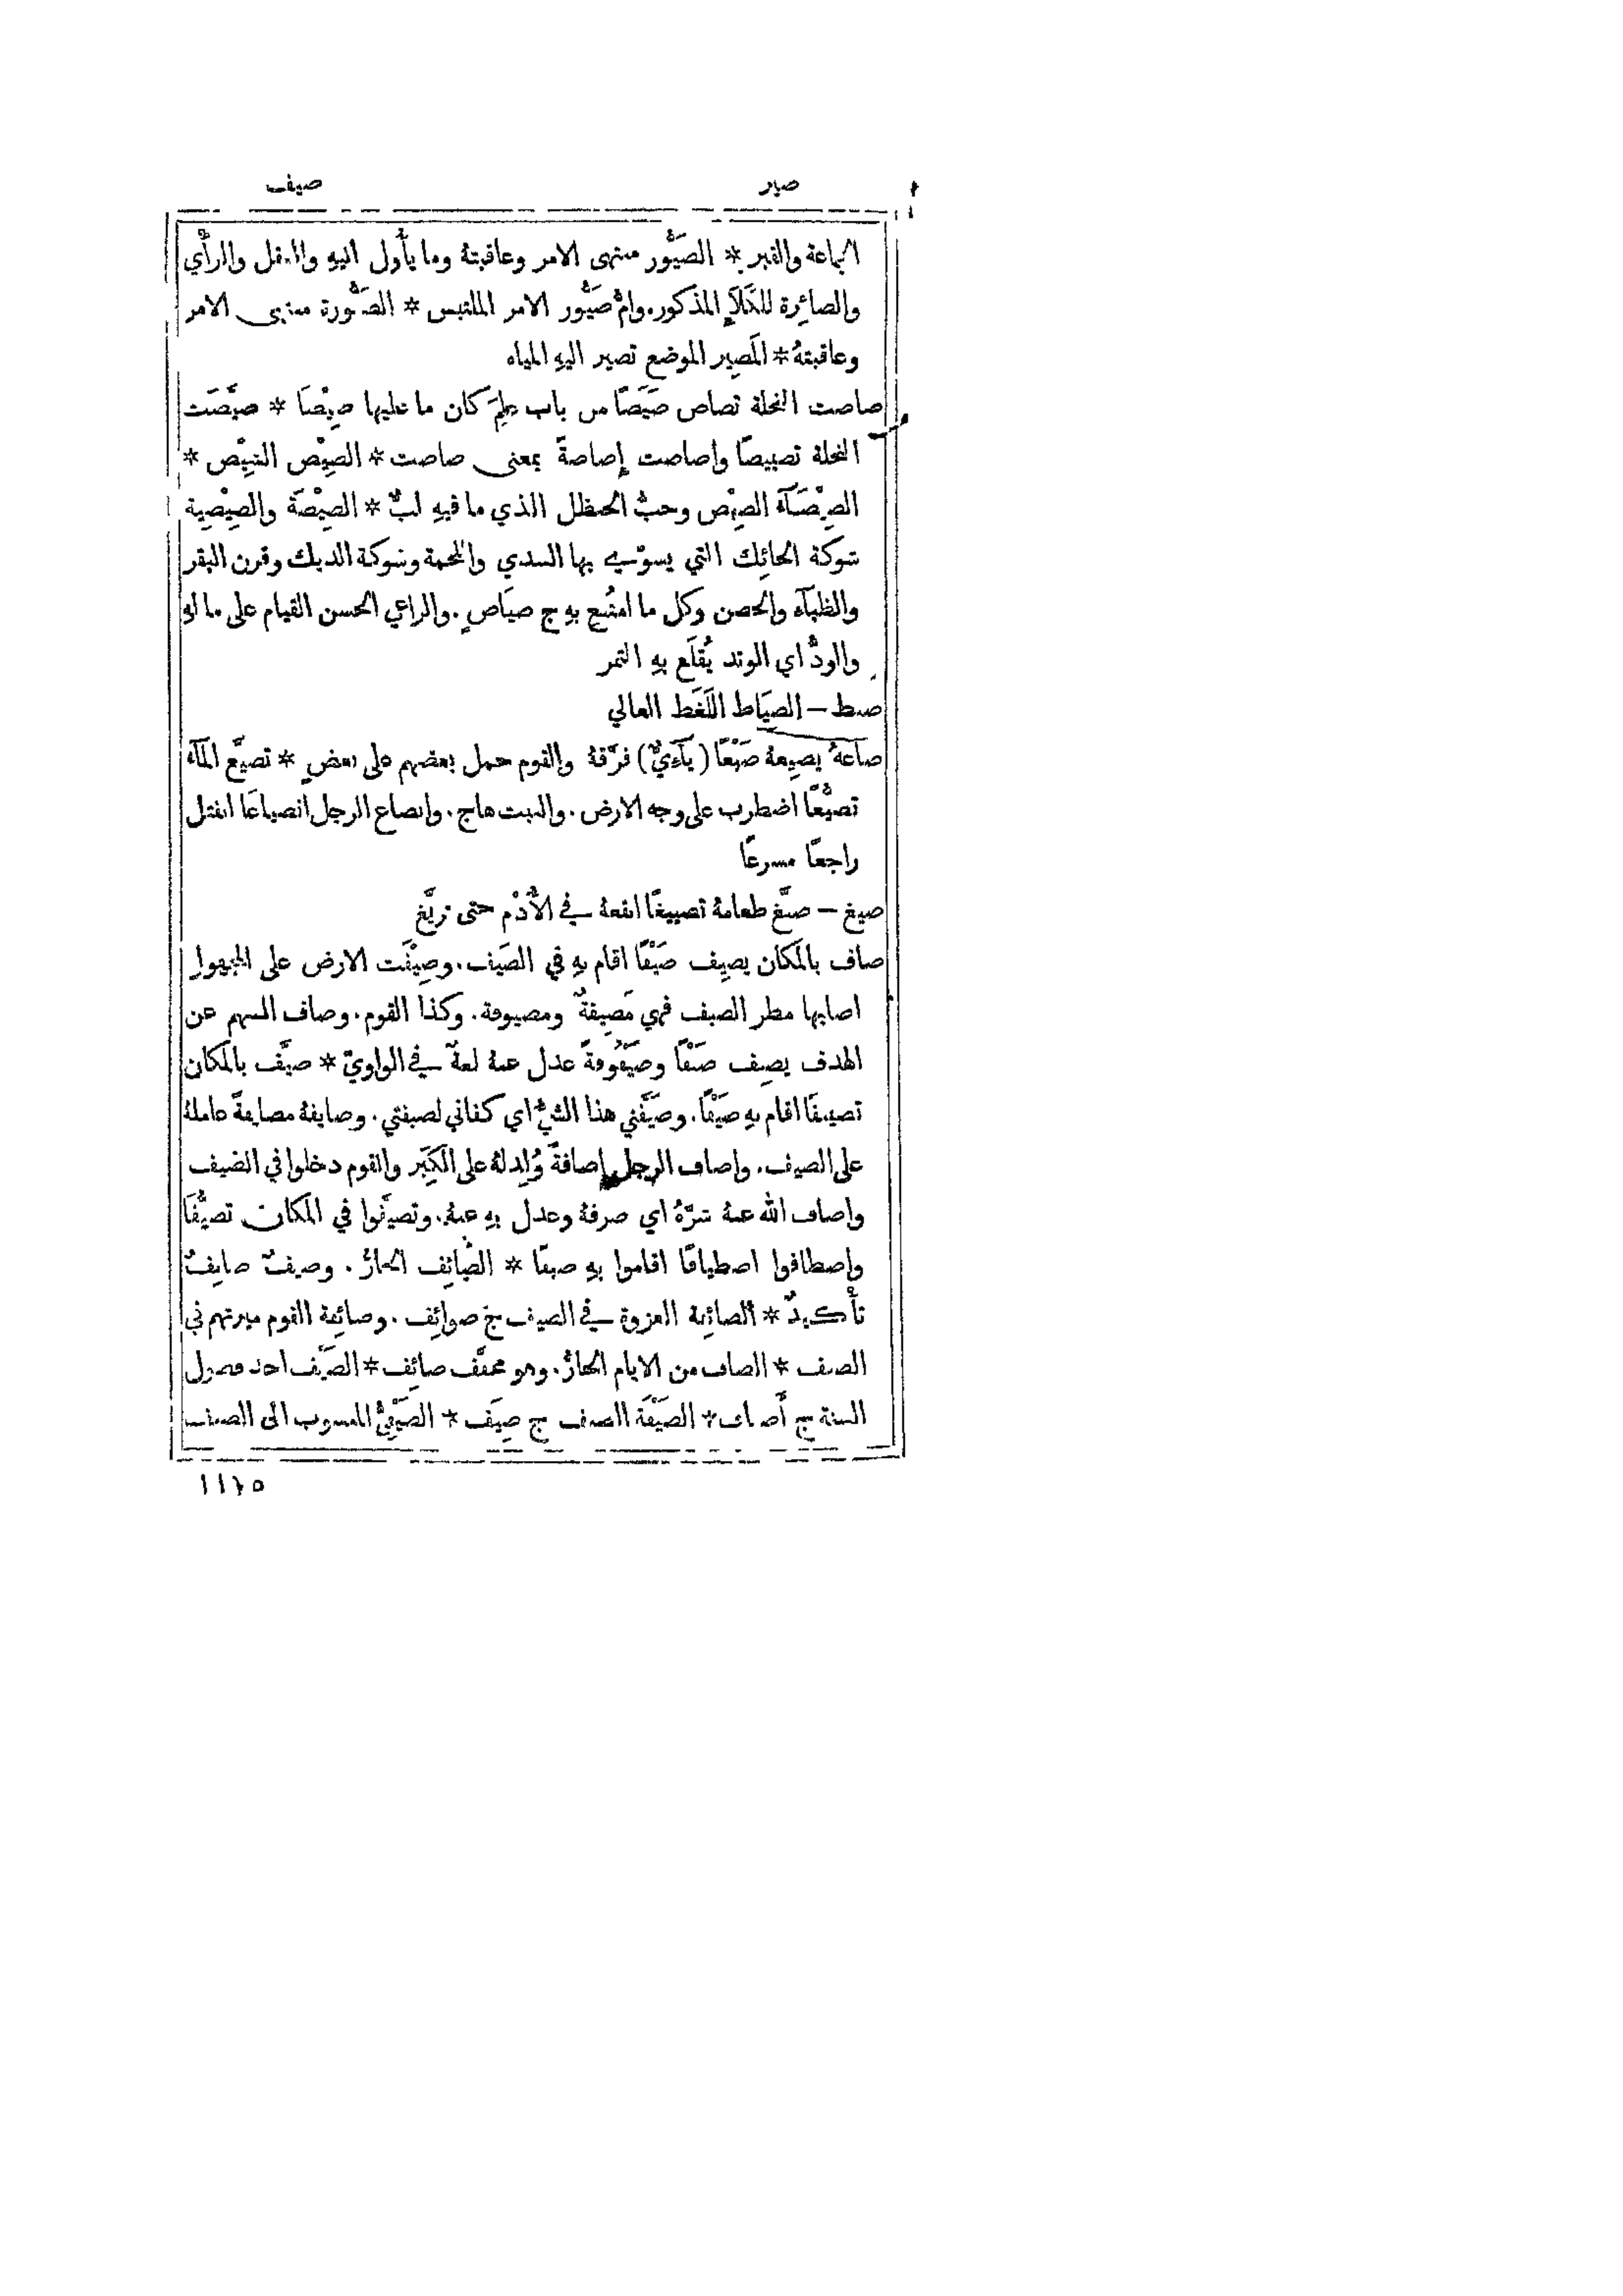 صير صيف
الجماعة والقبر * الصَيُّور منتهى الامر وعاقبتهُ وما يأُول اليهِ والعقل والرأْي
والصائِرة للكَلَإِ المذكور. وامُّ صَيُّور الامر الملتبس * الصَيُّورة منتهى الامر
وعاقبتهُ * المَصِير الموضع تصير اليهِ المياه
صاصت النخلة تصاص صَيَصًا من باب علِمَ كان ما عليها صِيْصًا * صيَّصَت
النخلة تصييصًا واصاصت إِصاصةً بمعنى صاصت * الصِيْص الشِيْص *
الصِيْصَآءُ الصِيْص وحبُّ الحنظل الذي ما فيهِ لبٌّ * الصِيْصَة والصِيْصِية
شوكة الحائِك التي يسوّي بها السدي واللحمة وشوكة الديك وقرن البقر
والظبآءِ والحصن وكل ما امتُنِع بهِ ج صيَاصٍ. والراعي الحسن القيام على مالهِ
والودُّ اي الوتد يُقلَع بهِ التمر
صيط – الصيَاط اللَغَط العالي
صاعهُ يصِيعهُ صَيْعًا (يآءِيٌّ) فرَّقهُ والقوم حمل بعضهم على بعضٍ * تصيَّع المآءُ
تصيُّعًا اضطرب على وجه الارض. والنبت هاج. وانصاع الرجل انصياعًا انفتل
راجعًا مسرعًا
صيغ – صيَّغ طعامهُ تصييغًا انقعهُ في الأُدْم حتى تريَّغ
صاف بالمكان يصِيف صَيْفًا اقام بهِ في الصَيف. وصِيْفَت الارض على المجهول
اصابها مطر الصيف فهي مَصِيفةٌ ومصيوفة. وكذا القوم. وصاف السهم عن
الهدف يصِيف صَيْفًا وصَيْفُوفةً عدل عنهُ لغةٌ في الواويّ * صيَّف بالمكان
تصييفًا اقام بهِ صَيْفًا. وصَيَّفَني هذا الشيُّ اي كفاني لصيفتي. وصايفهُ مصايفةً عاملهُ
على الصيف. واصاف الرجل إِصافةً وُلِد لهُ على الكِبَر والقوم دخلوا في الصيف
واصاف الله عنهُ شرَّهُ اي صرفهُ وعدل بهِ عنهُ. وتصيَّفوا في المكان تصيُّفًا
واصطافوا اصطيافًا اقاموا بهِ صيفًا * الصَائِف الحارُّ. وصيفٌ صايفٌ
تأْكيدٌ * الصائِفة الغزوة في الصيف ج صوائِف. وصائِفة القوم ميرتهم في
الصيف * الصاف من الايام الحارُّ. وهو مخفَّف صائِف * الصَيْف احد فصول
السنة ج أَصياف * الصَيْفَة الصيف ج صِيَف * الصَيْفِيُّ المنسوب الى الصيف
١١٢٥